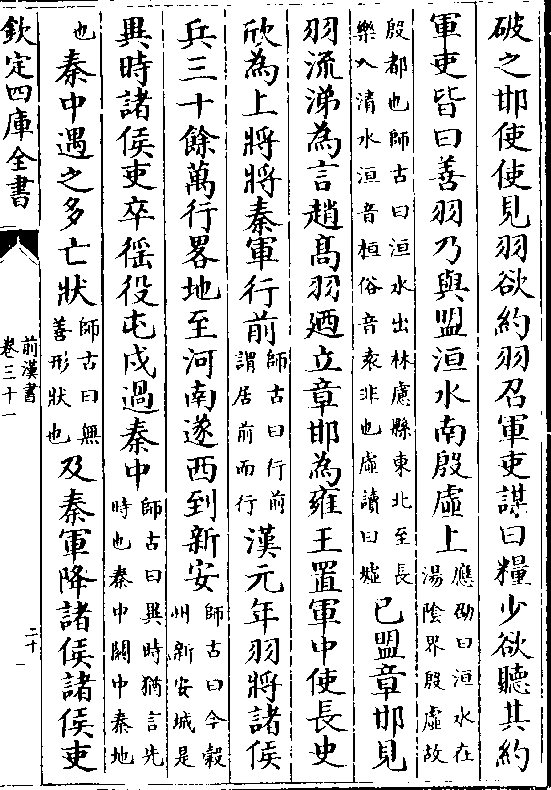 破之邯使使見羽欲約羽召軍吏謀曰糧少欲聽其約
軍吏皆曰善羽乃與盟洹水南殷虛上應劭曰洹水在湯陰界殷虛故
殷都也師古曰洹水出林慮縣東北至長樂入清水洹音桓俗音袁非也虛讀曰墟已盟章邯見
羽流涕為言趙髙羽廼立章邯為雍王置軍中使長史
欣為上將將秦軍行前師古曰行前謂居前而行漢元年羽將諸侯
兵三十餘萬行畧地至河南遂西到新安師古曰今穀州新安城是
也
異時諸侯吏卒徭役屯戍過秦中師古曰異時猶言先時也秦中闗中秦地
秦中遇之多亡狀師古曰無善形狀也及秦軍降諸侯諸侯吏
欽定四庫全書
前漢書
卷三十一
二十